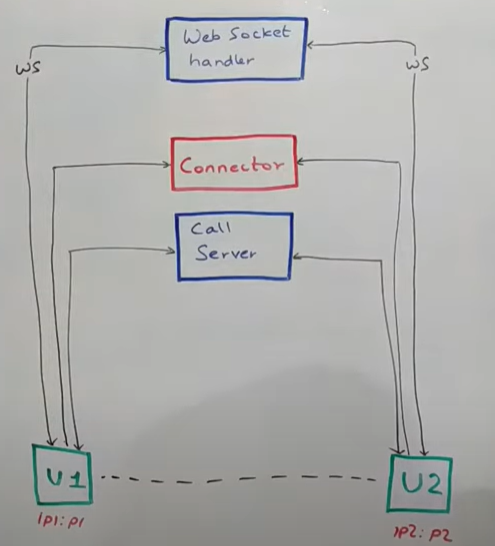 Web Socket
handler
WS
WS
Connector
Call
Server
U1
U2
IP1: P1
IP2: P2